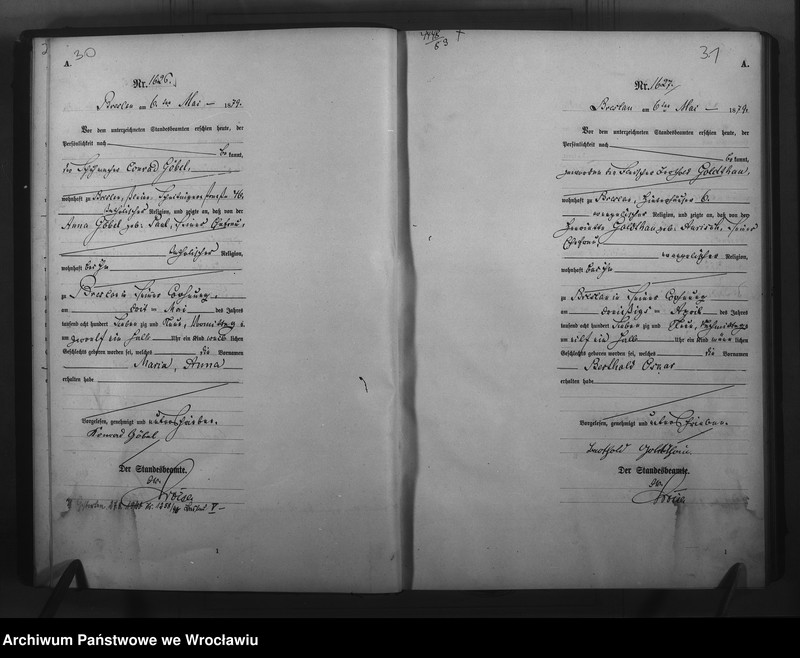 30
A.
Nr. 1626.
Breslau am 6. ten Mai 1879.
Vor dem unterzeichneten Standesbeamten erschien heute, der
Persönlichkeit nach
be kannt,
der Conrad Göbel,
wohnhaft zu Breslau, 46,
katholischer Religion, und zeigte an, daß von der
Anna Göbel geb. seiner Ehefrau,
katholischer Religion,
wohnhaft bei ihm
zu Breslau in seiner Wohnung,
am Mai des Jahres
tausend acht hundert sieben zig und neun, Vormittags
um zwölf ein halb Uhr ein Kind weib lichen
Geschlechts geboren worden sei, welches die Vornamen
Maria, Anna
erhalten habe
Vorgelesen, genehmigt und unterschrieben.
Konrad Göbel
Der Standesbeamte.
31
A.
Nr. 1627.
Breslau am 6 ten Mai 1879.
Vor dem unterzeichneten Standesbeamten erschien heute, der
Persönlichkeit nach
be kannt,
der Fleischer Berthold Goldthau,
wohnhaft zu Breslau, 6.
evangelischer Religion, und zeigte an, daß von der
Henriette Goldthau geb. seiner
Ehefrau,
evangelischer Religion,
wohnhaft bei ihm
zu Breslau in seiner Wohnung
am dreißigsten April des Jahres
tausend acht hundert sieben zig und neun, Nachmittags
um elf ein halb Uhr ein Kind männ lichen
Geschlechts geboren worden sei, welches die Vornamen
Berthold Oskar
erhalten habe
Vorgelesen, genehmigt und unterschrieben.
Berthold Goldthau.
Der Standesbeamte.
1
1
Archiwum Państwowe we Wrocławiu